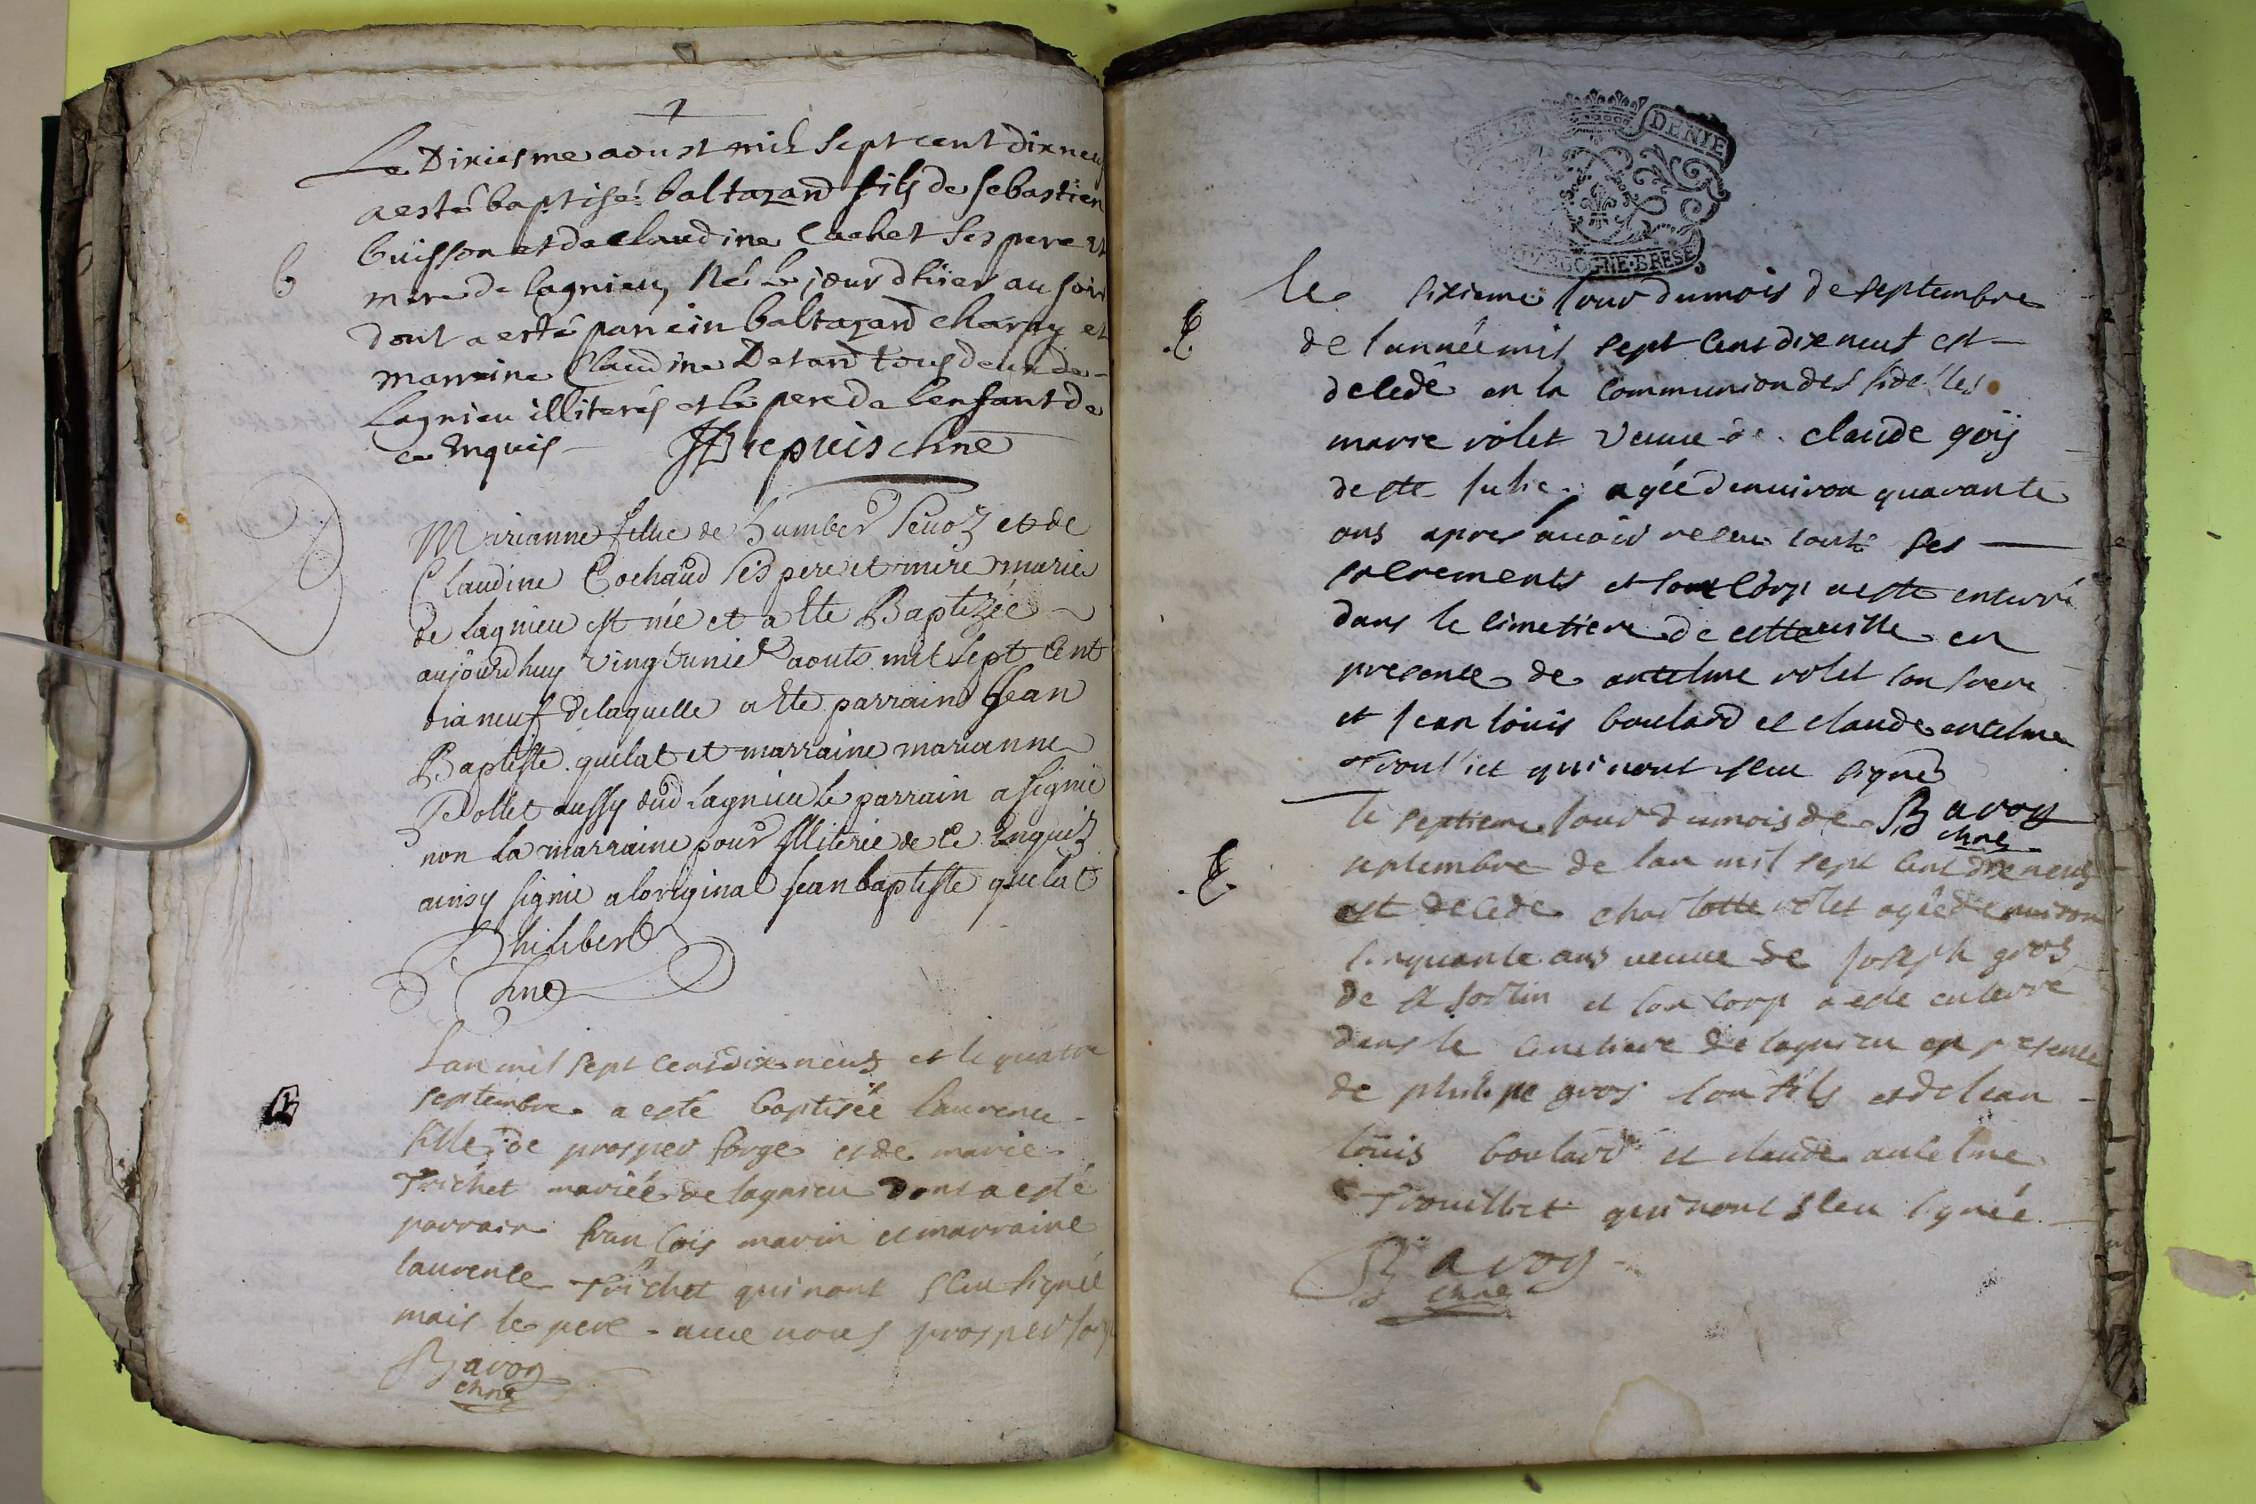 Le Dixiesme aoust mil sept cent dix neuf
a esté baptisé baltazard fils de sebastien
buisson et de claudine Cachet ses pere et
b
mere de lagnieu, Né le jour dhier au soir
dont a esté parrein baltazard charny et
marreine Claudine Detard tous deux de
Lagnieu illiterés et le pere de lenfant de
ce Enquis
puis chne
Marianne fille de humber Seuoz et de
Claudine Cochaud ses pere et mere maries
de lagnieu est née et a ete Baptizée
aujourdhuy vingtunie aouts mil sept cent
dix neuf de laquelle a ete parrain Jean
Baptiste quelat et marraine marianne
Pollet aussy dud Lagnieu le parrain a signé
non la marraine pour Illiterée de ce Enquis
ainsy signé a loriginal Jean baptiste quelat
Philibert
Chne
Lan mil sept cens dix neuf et le quatre
B
septembre a esté baptisée laurence
fille de prosper forge et de marie
Trichet mariée de lagnieu dont a esté
parrain francois marin et marraine
laurence Trichet qui nont sceu signée
mais le pere avec nous prosper
Bavoy
chne
DENIE
BOURGOGNE·BRESE
Le sixieme Jour du mois de septembre
de lannée mil sept cens dix neuf est
decedé en la Communion des fideles
marie volet veuve de claude goÿ
de ste Julie agée denviron quarante
ans apres avoir receu tout ses
sacrements et son corp a este enterré
dans le cimetiere de cette ville en
presence de antelme volet son frere
et Jean louis boulard et claude antelme
Trouillet qui nont sceu signé
Bavoy
chne
le septieme Jour du mois de
septembre de lan mil sept cens dix neuf
est decede charlotte volet agée denviron
cinquante ans veuve de Joseph gros
de st sorlin et son corp a este enterré
dans le cimetiere de lagnieu en presence
de philipe gros son fils et de Jean
louis boulard et claude antelme
Trouillet qui nont sceu signée
Bavoy
chne